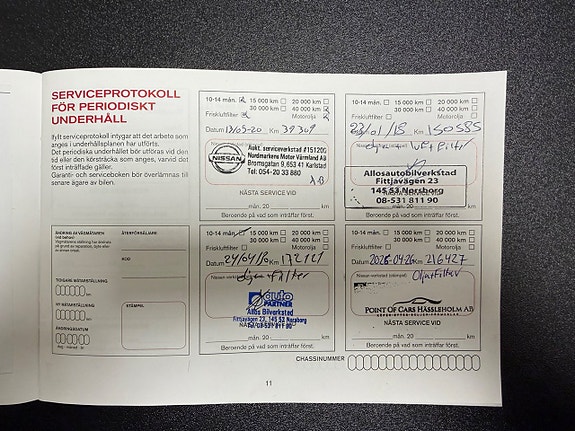 SERVICEPROTOKOLL
FÖR PERIODISKT
UNDERHÅLL
Ifyllt serviceprotokoll intygar att det arbete som
anges i underhållsplanen har utförts.
Det periodiska underhållet bör utföras vid den
tid eller den körsträcka som anges, varvid det
först inträffade gäller.
Garanti- och serviceboken bör överlämnas till
senare ägare av bilen.
ÄNDRING AV VÄGMÄTAREN
ÅTERFÖRSÄLJARE
KOD
TIDIGARE MÄTARSTÄLLNING
km
NY MÄTARSTÄLLNING
km
STÄMPEL
ÄNDRINGSDATUM
10-14 mån. 15 000 km 20 000 km
30 000 km 40 000 km
Friskluftfilter Motorolja
Datum 13/05-20 Km 39309
NISSAN
Aukt. serviceverkstad #151200
Nordmarkens Motor Värmland AB
Bromsgatan 9, 653 41 Karlstad
Tel: 054-20 33 880
NÄSTA SERVICE VID
mån. 20 km
Beroende på vad som inträffar först.
10-14 mån. 15 000 km 20 000 km
30 000 km 40 000 km
Friskluftfilter Motorolja
23/01/18 150585
Allosautobilverkstad
Fittjavägen 23
145 53 Norsborg
08-531 811 90
mån. 20 km
Beroende på vad som inträffar först.
10-14 mån. 15 000 km 20 000 km
30 000 km 40 000 km
Friskluftfilter Motorolja
Datum Km
auto
PARTNER
Allos Bilverkstad
Fittjavägen 23, 145 53 Norsborg
Tel 08-531 811 90
NÄSTA SERVICE VID
mån. 20 km
Beroende på vad som inträffar först.
10-14 mån. 15 000 km 20 000 km
30 000 km 40 000 km
Friskluftfilter Motorolja
Datum Km 216427
Oljefilter
POINT OF CARS HÄSSLEHOLM AB
NÄSTA SERVICE VID
mån. 20 km
Beroende på vad som inträffar först.
CHASSINUMMER
11